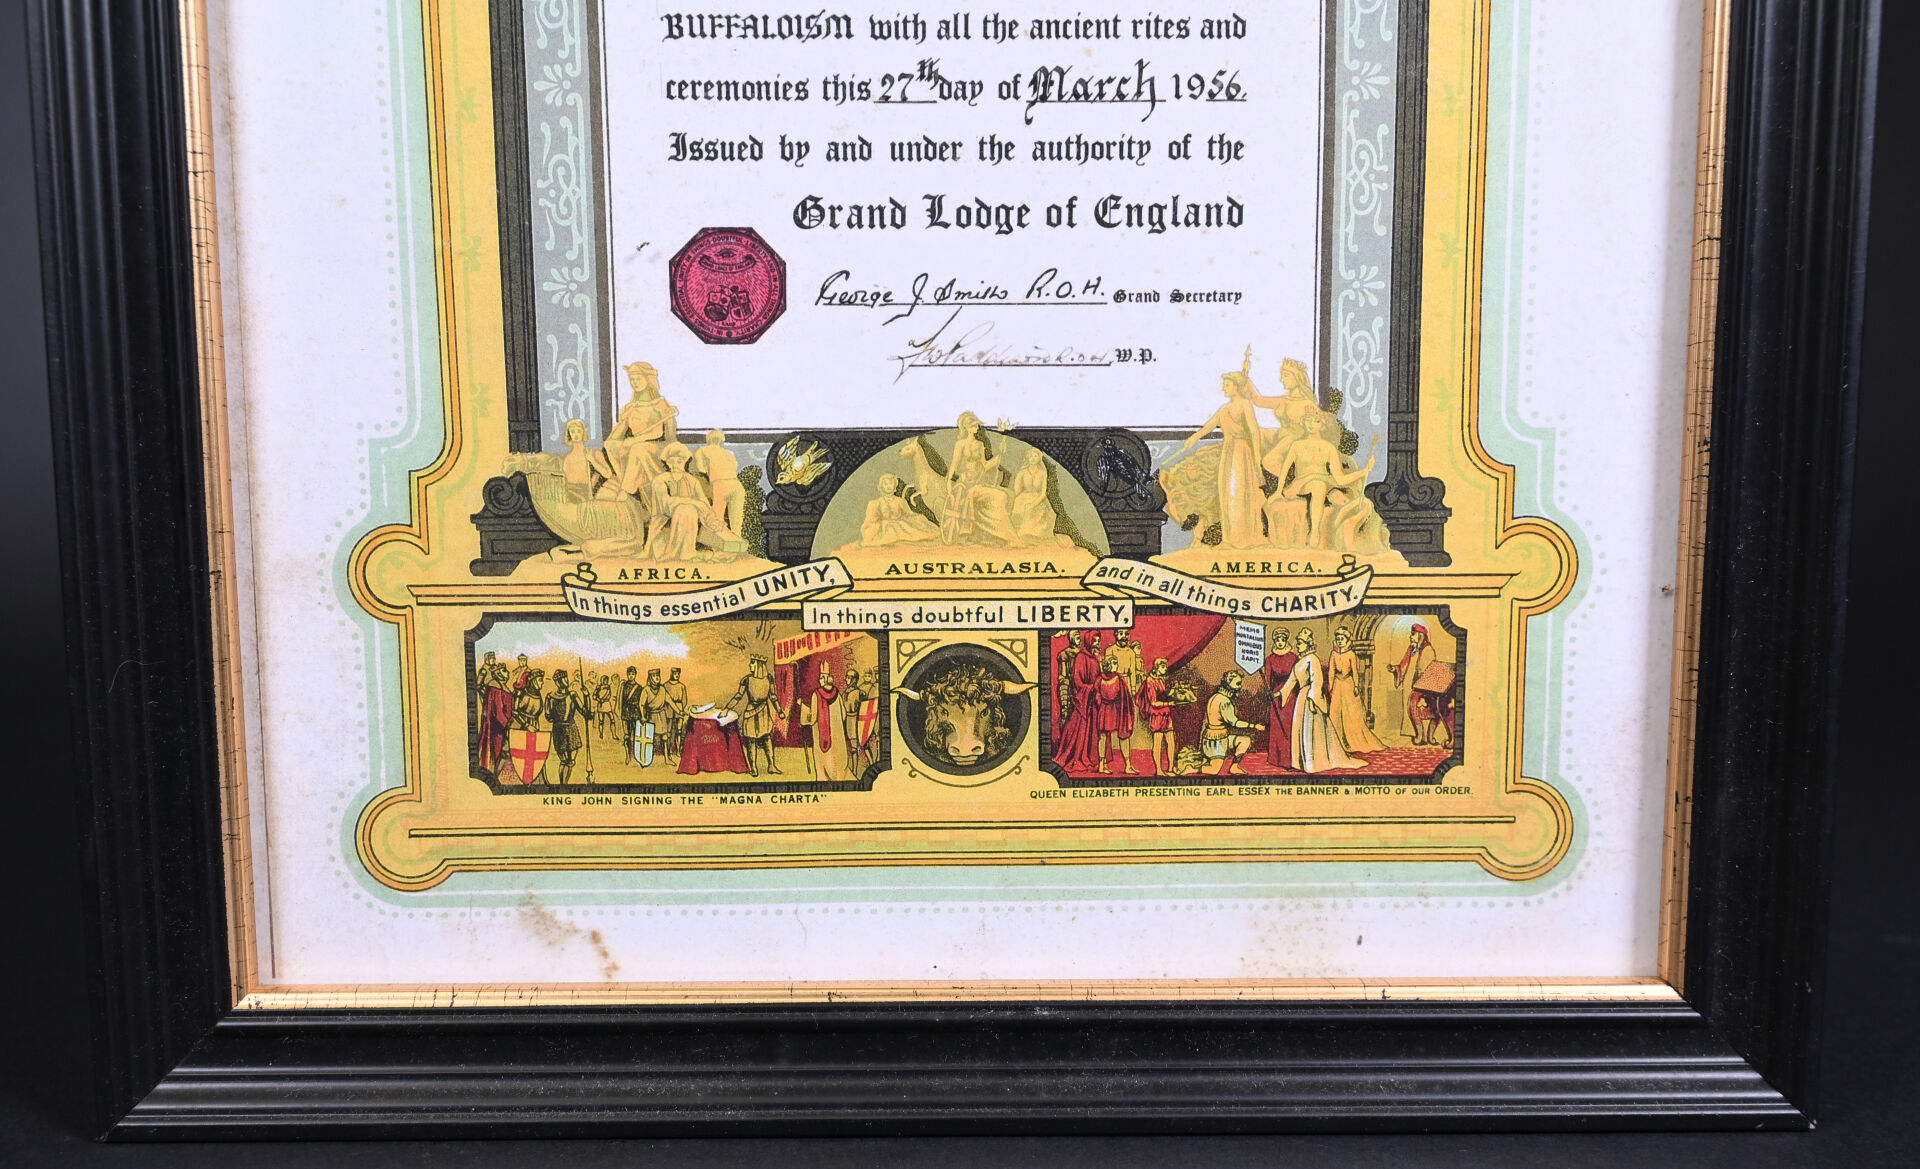 BUFFALOISM with all the ancient rites and
ceremonies this 27th day of March 1956.
Issued by and under the authority of the
Grand Lodge of England
George J. Smith R.O.H. Grand Secretary
R.O.H. W.P.
AFRICA.
AUSTRALASIA.
AMERICA.
In things essential UNITY,
In things doubtful LIBERTY,
and in all things CHARITY.
Bible
NEMO
MORTALIUM
OMNIBUS
HORIS
SAPIT.
KING JOHN SIGNING THE "MAGNA CHARTA"
QUEEN ELIZABETH PRESENTING EARL ESSEX THE BANNER & MOTTO OF OUR ORDER.